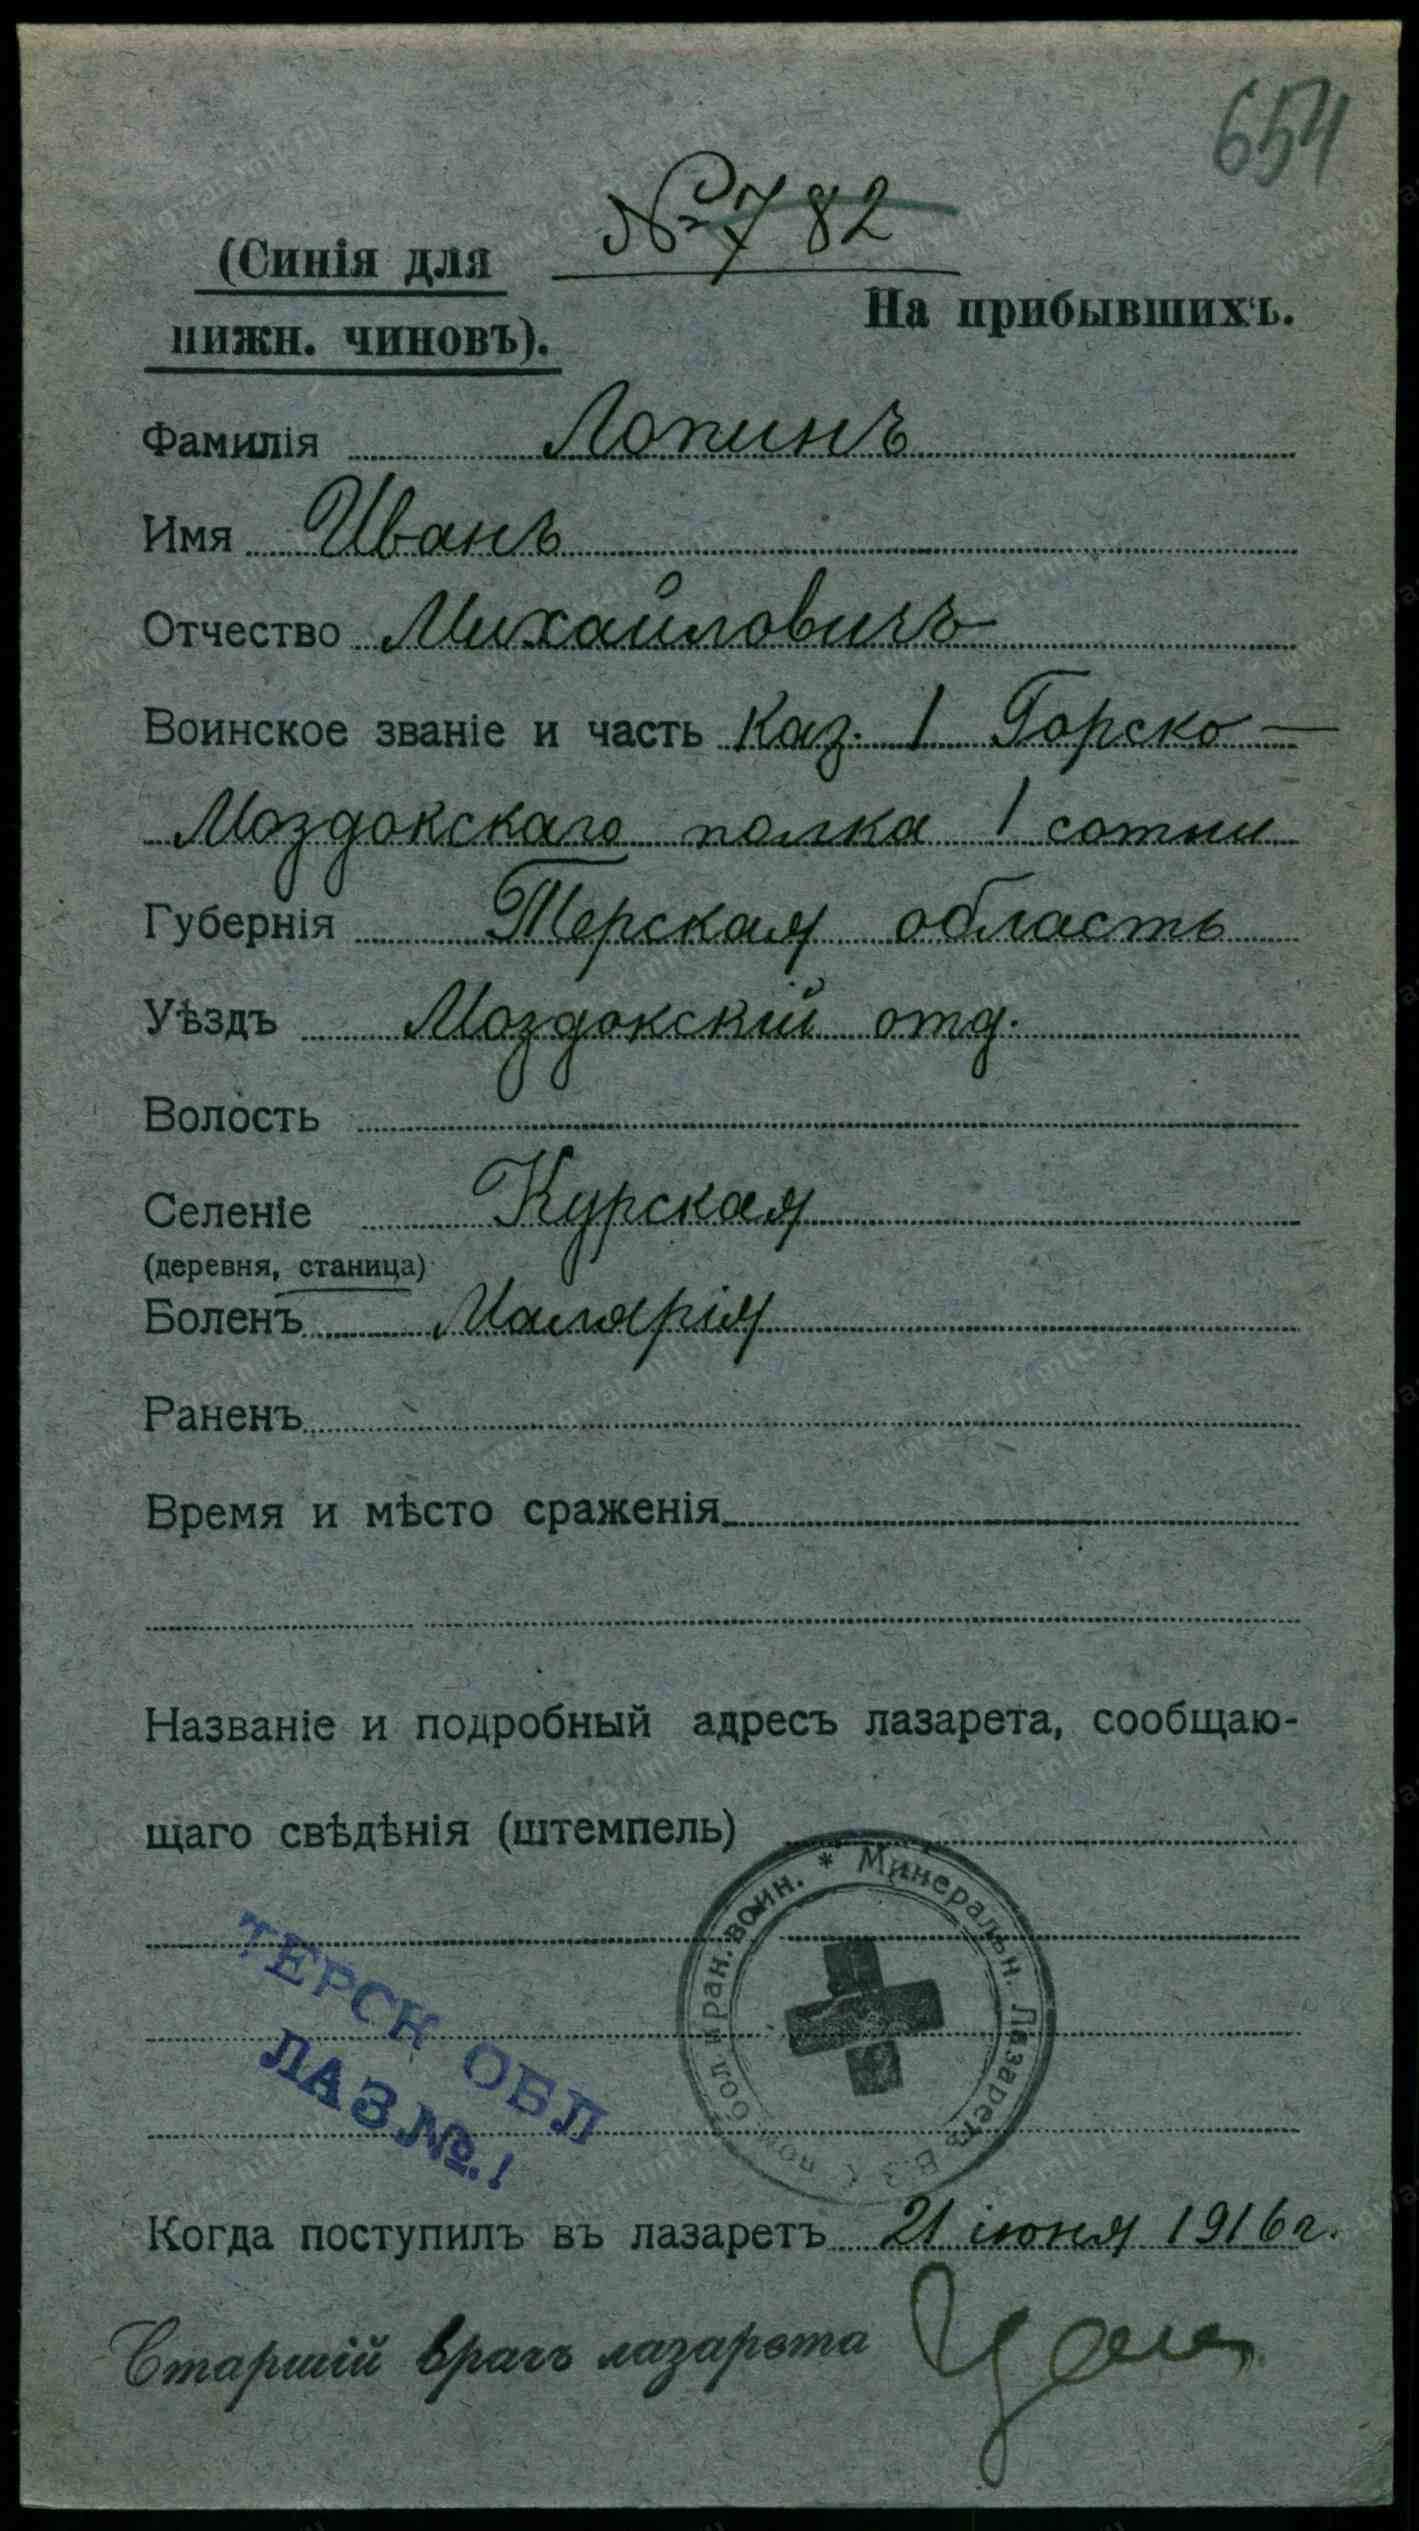 654
№ 782
(Синія для
нижн. чиновъ).
На прибывшихъ.
Фамилія Лопинъ
Имя Иванъ
Отчество Михайловичъ
Воинское званіе и часть Каз. 1 Горско-
Моздокскаго полка 1 сотни
Губернія Терская область
Уѣздъ Моздокскій отд.
Волость
Селеніе Курская
(деревня, станица)
Боленъ Малярія
Раненъ
Время и мѣсто сраженія
Названіе и подробный адресъ лазарета, сообщаю-
щаго свѣдѣнія (штемпель)
* Минеральн. Лазаретъ В.З. пом. бол. и ран. воин.
ТЕРСК ОБЛ
ЛАЗ №. 1
Когда поступилъ въ лазаретъ 21 іюня 1916 г.
Старшій врачъ лазарета